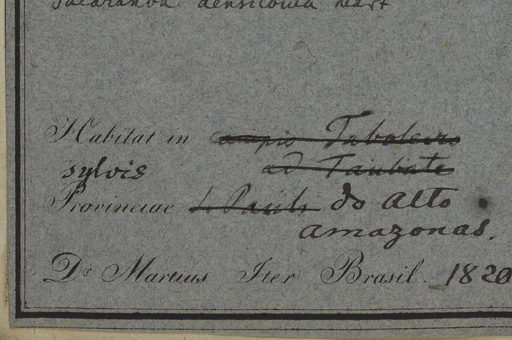 Jacaranda densicoma Mart
Habitat in campis Taboleiro
sylvis ad Taubate
Provinciae S. Pauli do Alto
Amazonas.
Dr. Martius Iter Brasil. 1820